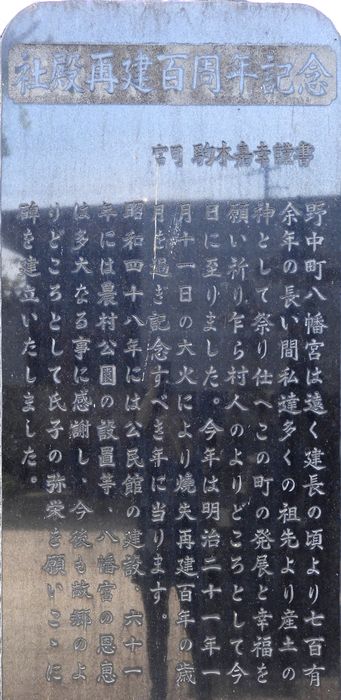 社殿再建百周年記念
宮司 駒木嘉幸謹書
野中町八幡宮は遠く建長の頃より七百有
余年の長い間私達多くの祖先より産土の
神として祭り仕へこの町の発展と幸福を
願い祈り乍ら村人のよりどころとして今
日に至りました。今年は明治二十一年一
月十一日の大火により焼失再建百年の歳
月を過ぎ記念すべき年に当ります。
昭和四十八年には公民館の建設、六十一
年には農村公園の設置等、八幡宮の恩恵
は多大なる事に感謝し、今後も故郷のよ
りどころとして氏子の弥栄を願いこゝに
碑を建立いたしました。